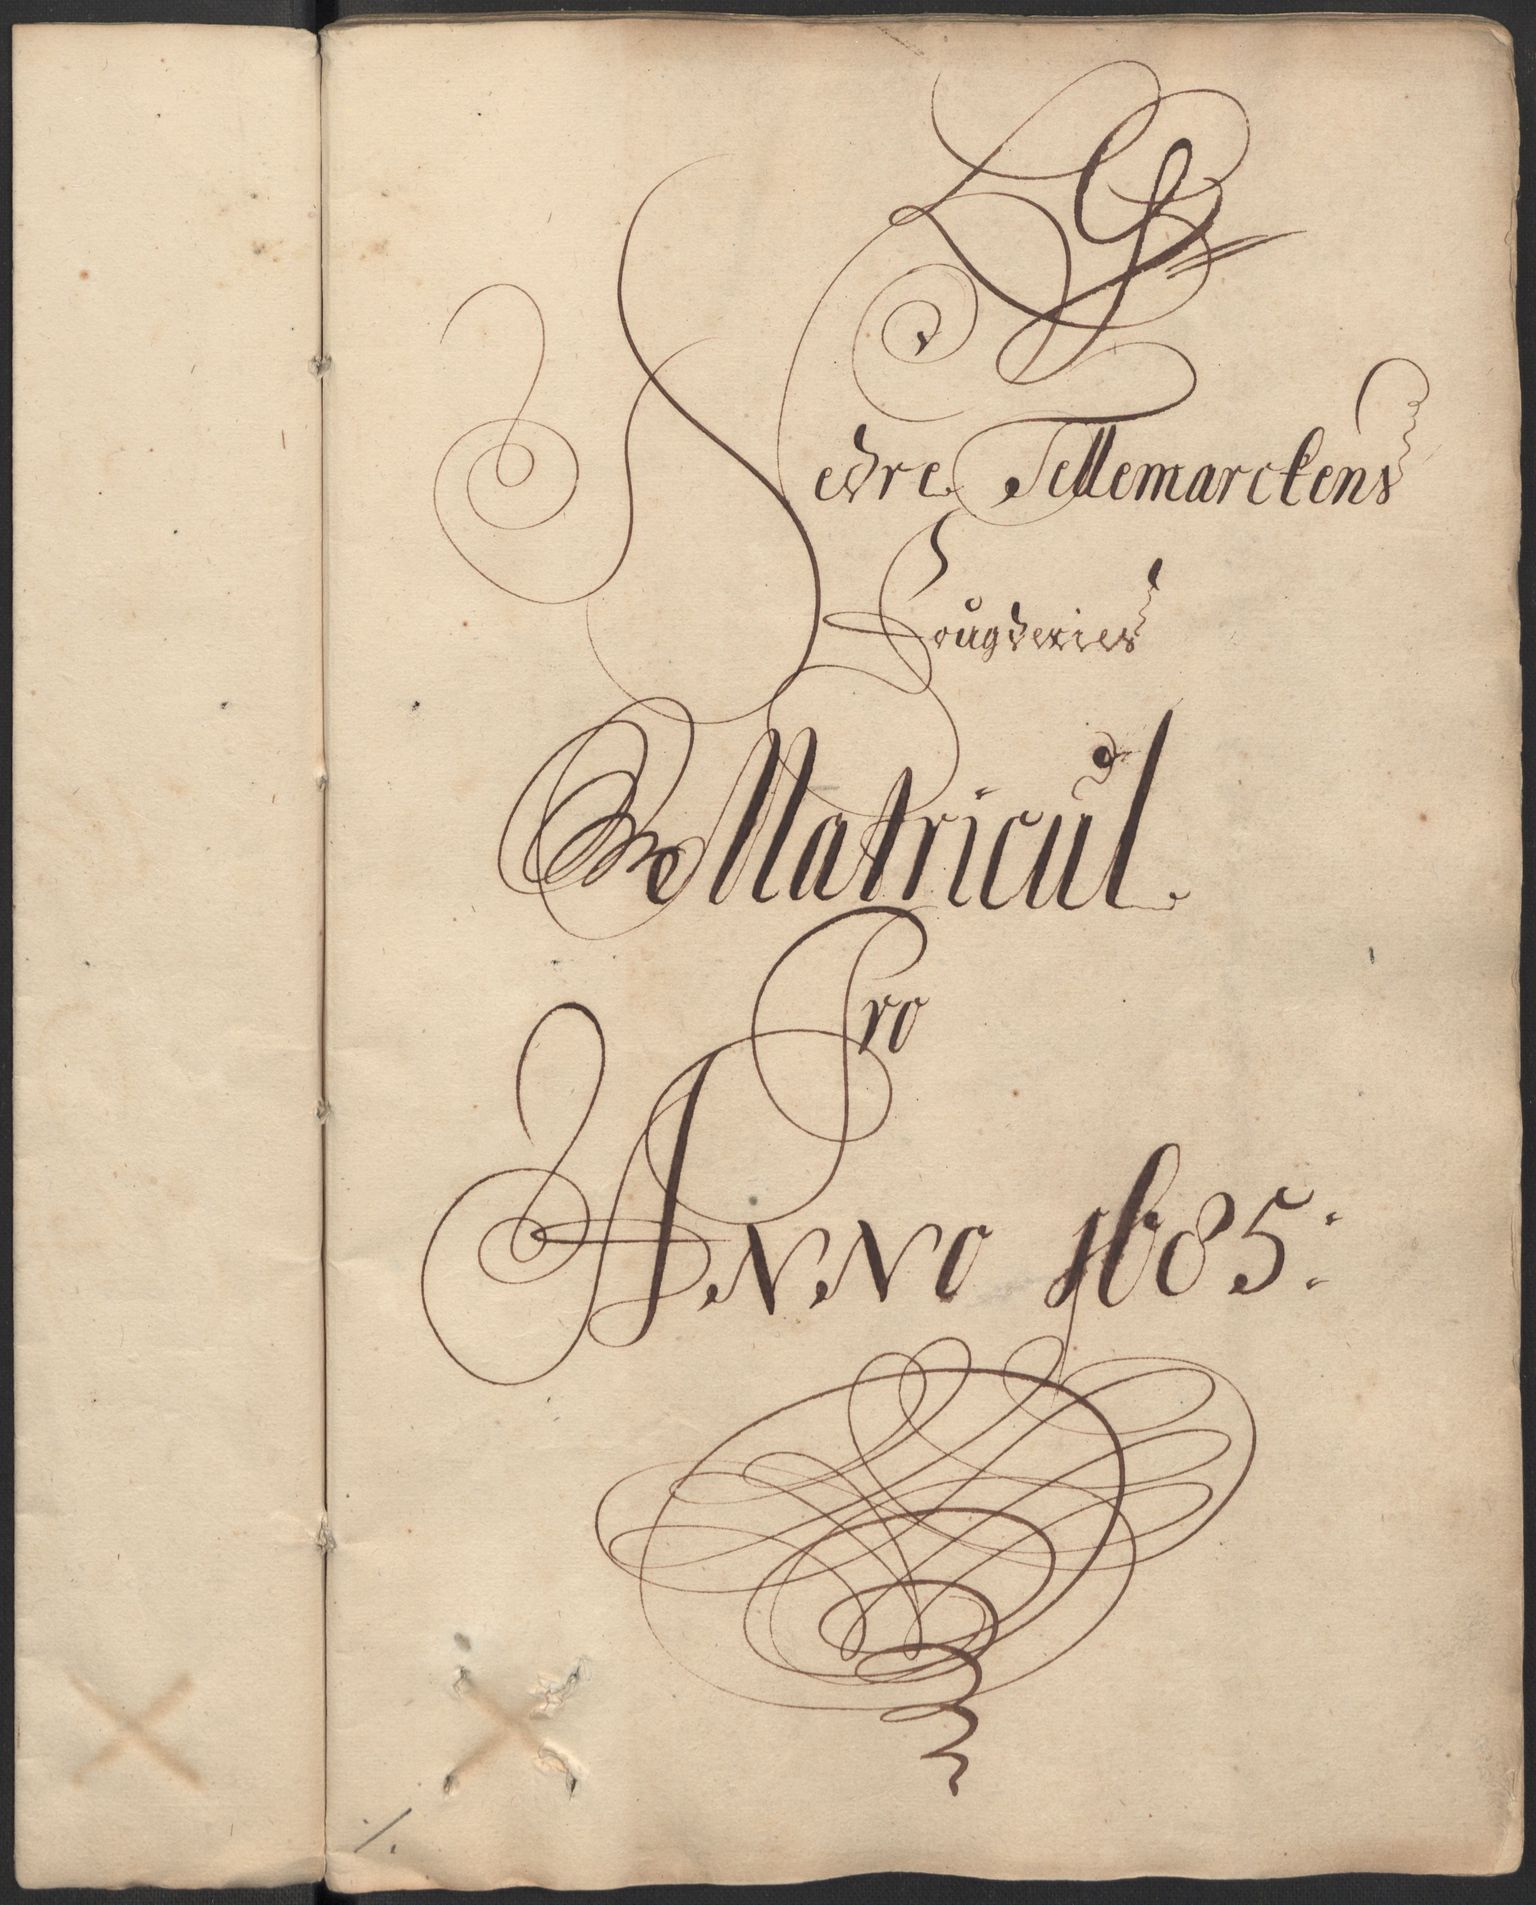 Nedre Tellemarckens
Fougderies
Matricul
Pro
ANNO 1685: